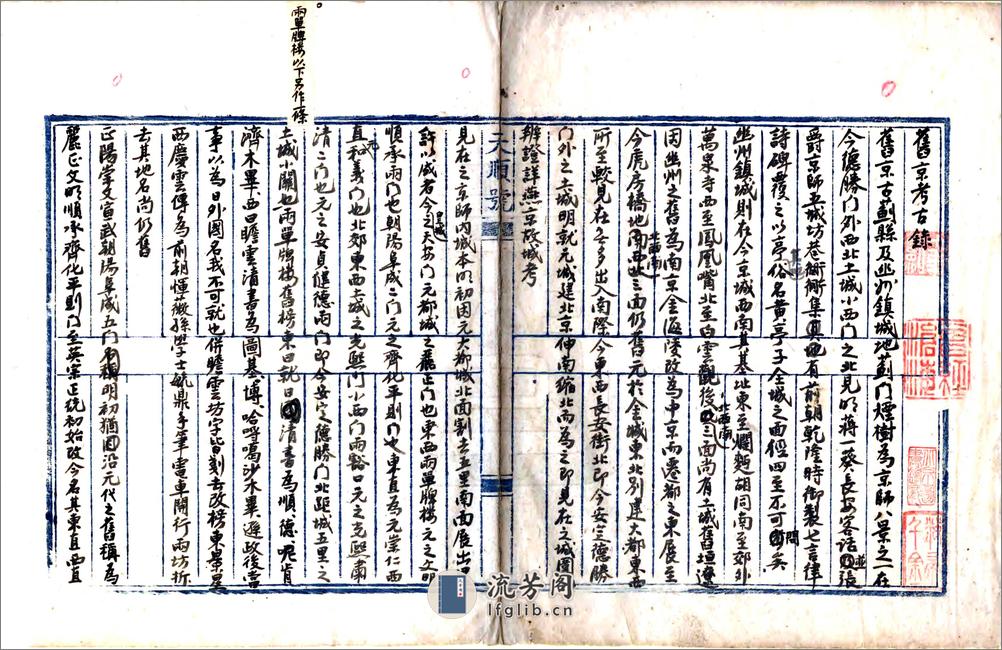 舊京考古錄
舊京古薊縣及幽州鎮城地薊門煙樹為京師八景之一在
今德勝門外西北土城小西门之北見明蔣一葵長安客話並張
爵京師五城坊巷衚衕集其地有前朝乾隆時御製七言律
詩碑覆之以亭俗名黃亭子全城之面徑四至不可問矣
幽州鎮城則在今京城西南其基址東至爛麵胡同南至郊外
萬泉寺西至鳳凰嘴北至白雲觀後北西南三面尚有土城舊垣遼
因幽州之舊為南京金海陵改為中京而遷都之東展至
今虎房橋地北西南三面仍舊元於金城東北別建大都東西
所至較見在多多出入南際今東西長安街北即今安定德勝
门外之土城明就元城建北京伸南縮北而為之即見在之城圍
辨證詳燕京故城考
天順號
見在之京師内城本明初因元大都城北面割去五里南面展出
許以威者今皇城之天安门元都城之麗正门也東西兩單牌樓元之文明
順承兩门也朝陽阜成二门元之齊化平則门也東直為元崇仁西
直元和義门也北郊東西土城之光熙门小西门兩豁口元之光熙肅
清二门也元之安貞健德兩门即今安定德勝门北距城五里之
土城小關也兩單牌樓舊榜東曰就日清書為順德呢肯
濟木畢西曰瞻雲清書為圖基博哈噂噶沙木畢遜政後當
事以為日外國名我不可就也併瞻雲坊字皆剗去改榜東景星
西慶雲傳為前朝惲薇孫學士毓鼎手筆電車開行兩坊折
去其地名尚仍舊
正陽崇文宣武朝陽阜成五门名稱明初猶沿元代之舊稱為
麗正文明順承齊化平則门至英宗正统初始改今名其東直西直
兩單牌樓以下另作一條
流芳阁
lfglib.cn